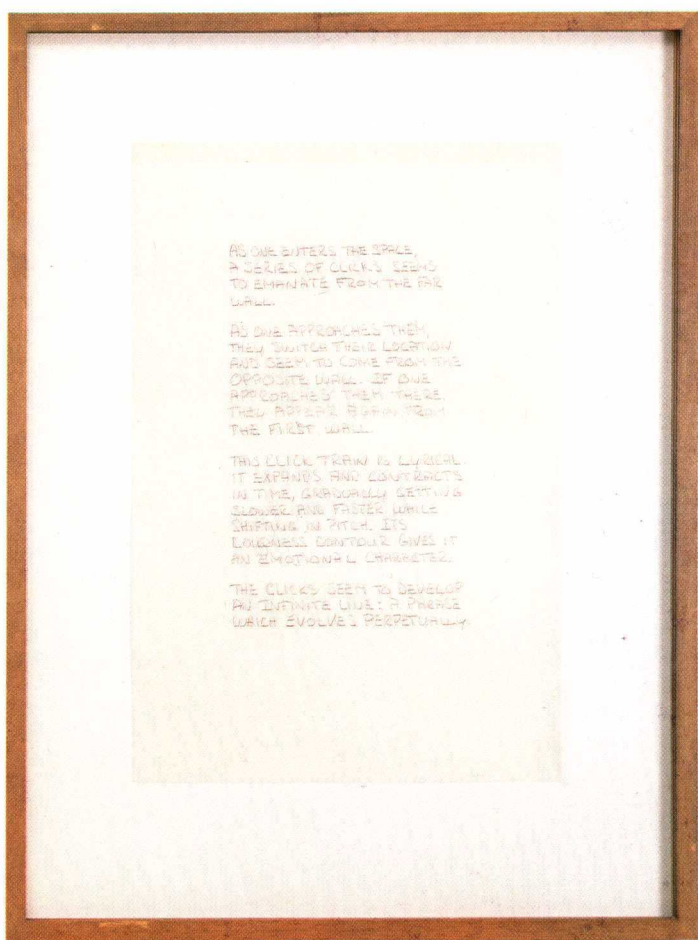 AS ONE ENTERS THE SPACE,
A SERIES OF CLICKS SEEMS
TO EMANATE FROM THE FAR
WALL.
AS ONE APPROACHES THEM,
THEY SWITCH THEIR LOCATION
AND SEEM TO COME FROM THE
OPPOSITE WALL. IF ONE
APPROACHES THEM THERE,
THEY APPEAR AGAIN FROM
THE FIRST WALL.
THIS CLICK TRAIN IS LYRICAL.
IT EXPANDS AND CONTRACTS
IN TIME, GRADUALLY GETTING
SLOWER AND FASTER WHILE
SHIFTING IN PITCH. ITS
LOUDNESS CONTOUR GIVES IT
AN EMOTIONAL CHARACTER.
THE CLICKS SEEM TO DEVELOP
AN INFINITE LINE: A PHRASE
WHICH EVOLVES PERPETUALLY.